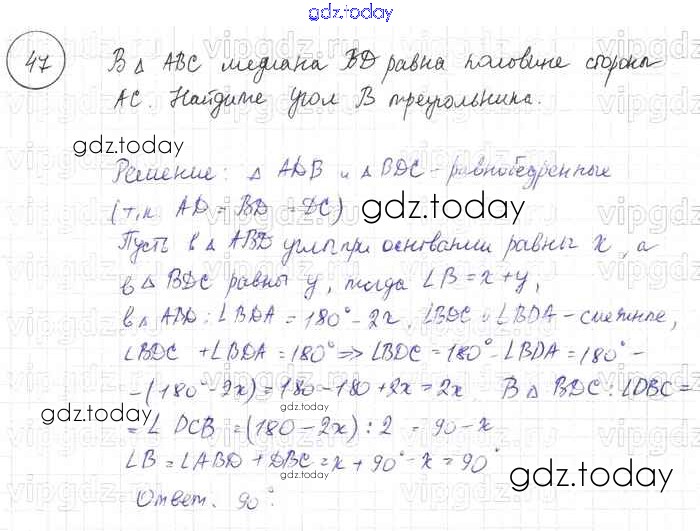 gdz.today
47 В △ ABC медиана BD равна половине стороны
AC. Найдите угол B треугольника.
gdz.today
Решение: △ ADB и △ BDC - равнобедренные
(т.к. AD = BD = DC) gdz.today
Пусть в △ ABD углы при основании равны x, а
в △ BDC равны y, тогда ∠B = x+y,
в △ ABD: ∠BDA = 180° - 2x, ∠BDC и ∠BDA - смежные,
∠BDC + ∠BDA = 180° => ∠BDC = 180° - ∠BDA = 180° -
-(180° - 2x) = 180 - 180 + 2x = 2x. В △ BDC: ∠DBC =
gdz.today gdz.today
= ∠ DCB = (180 - 2x) : 2 = 90 - x
∠B = ∠ABD + DBC = x + 90° - x = 90°
gdz.today
Ответ. 90°.
gdz.today